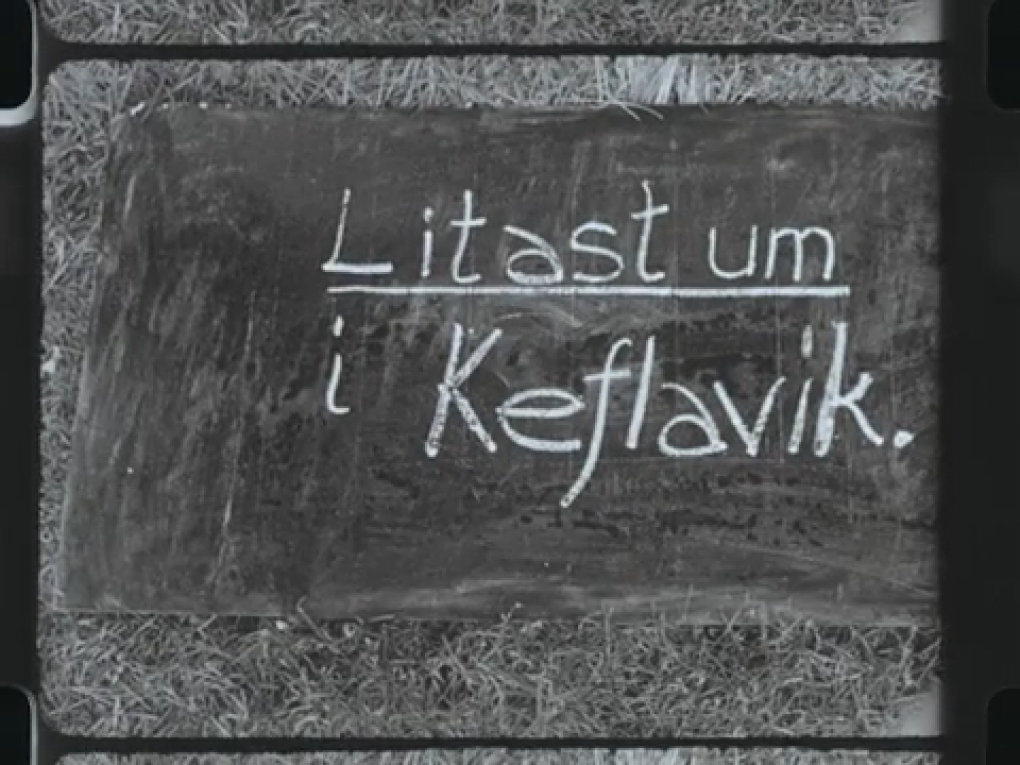 Litast um
i Keflavik.